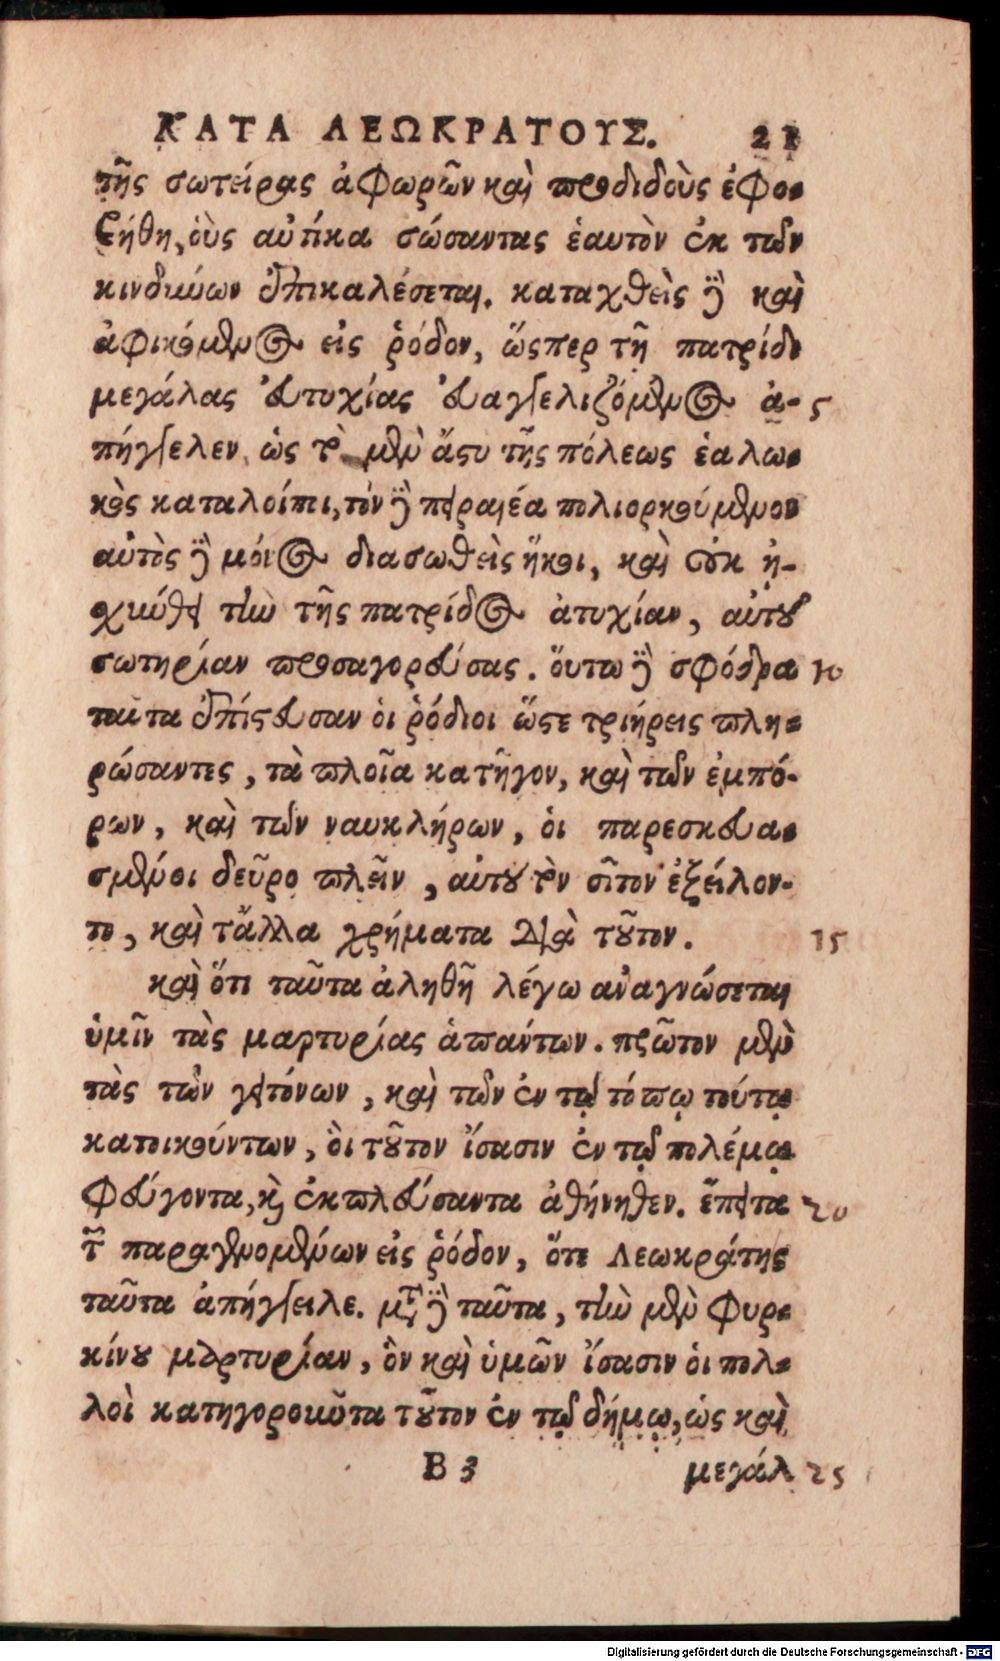 ΚΑΤΑ ΛΕΩΚΡΑΤΟΥΣ. 21
τῆς σωτείρας ἀφορῶν καὶ προδιδοὺς ἐφο-
βήθη, οὓς αὐτίκα σώσαντας ἑαυτὸν ἐκ τῶν
κινδύνων ἐπικαλέσεται. καταχθεὶς δὲ καὶ
ἀφικόμενος εἰς ῥόδον, ὥσπερ τῇ πατρίδι
μεγάλας εὐτυχίας εὐαγγελιζόμενος ἀ- 5
πήγγελεν, ὡς τὸ μὲν ἄστυ τῆς πόλεως ἑαλω-
κὸς καταλοίπι, τὸν δὲ πειραιέα πολιορκούμενον
αὐτὸς δὲ μόνος διασωθεὶς ἥκοι, καὶ οὐκ ᾐ-
σχύνθη τὴν τῆς πατρίδος ἀτυχίαν, αὐτοῦ
σωτηρίαν προσαγορεύσας. οὕτω δὲ σφόδρα 10
ταῦτα ἐπίστευσαν οἱ ῥόδιοι ὥστε τριήρεις πλη-
ρώσαντες, τὰ πλοῖα κατῆγον, καὶ τῶν ἐμπό-
ρων, καὶ τῶν ναυκλήρων, οἱ παρεσκευα-
σμένοι δεῦρο πλεῖν, αὐτοῦ τὸν σῖτον ἐξείλον-
το, καὶ τἄλλα χρήματα διὰ τοῦτον. 15
καὶ ὅτι ταῦτα ἀληθῆ λέγω ἀναγνώσεται
ὑμῖν τὰς μαρτυρίας ἁπάντων. πρῶτον μὲν
τὰς τῶν γειτόνων, καὶ τῶν ἐν τῷ τόπῳ τούτῳ
κατοικούντων, οἳ τοῦτον ἴσασιν ἐν τῷ πολέμῳ
φεύγοντα, καὶ ἐκπλεύσαντα ἀθήνηθεν. ἔπειτα 20
τῶν παραγενομένων εἰς ῥόδον, ὅτε Λεωκράτης
ταῦτα ἀπήγγειλε. μετὰ δὲ ταῦτα, τὴν μὲν Φυρ-
κίνου μαρτυρίαν, ὃν καὶ ὑμῶν ἴσασιν οἱ πολ-
λοὶ κατηγοροῦντα τοῦτον ἐν τῷ δήμῳ, ὡς καὶ
B 3 μεγάλ 25
Digitalisierung gefördert durch die Deutsche Forschungsgemeinschaft - DFG